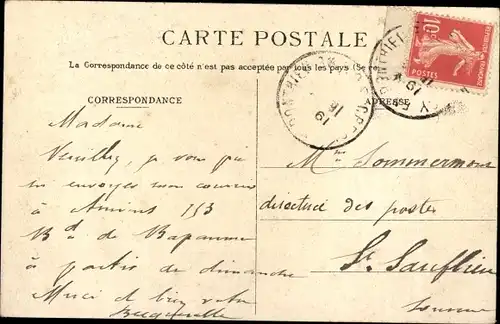 CARTE POSTALE
La Correspondance de ce côté n'est pas acceptée par tous les pays (Se
CORRESPONDANCE
ADRESSE
10c
POSTES
Madame
Veuillez je vous prie
m envoyer mon courrier
à Amiens 153
Bd de Bapaume
à partir de dimanche
Merci de bien votre
Mme Sommermont
directrice des postes
St Sauflieu
Somme